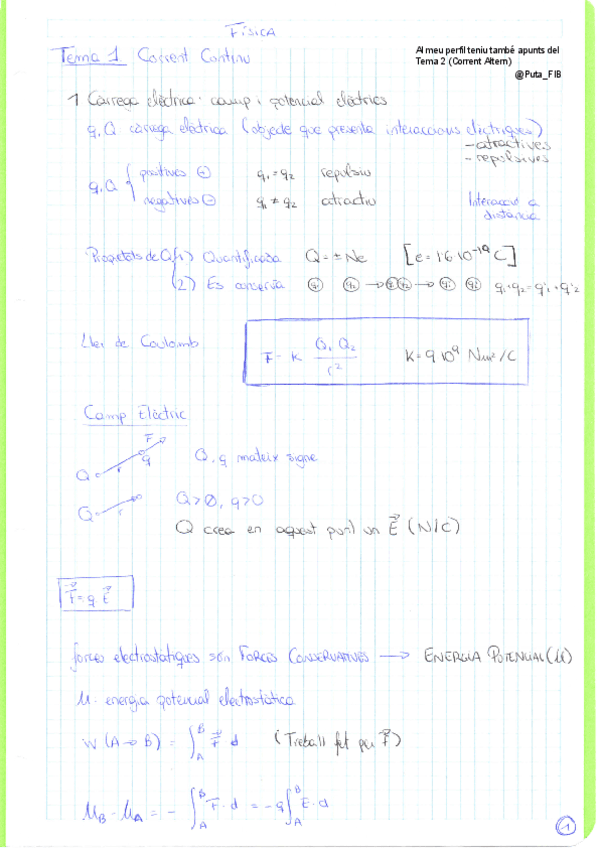 FÍSICA
Tema 1. Corrent Continu
Al meu perfil teniu també apunts del
Tema 2 (Corrent Altern)
@Puta_FIB
1 Càrrega elèctrica: camp i potencial elèctrics
q, Q càrrega elèctrica (objecte que presenta interaccions elèctriques)
- atractives
- repulsives
q, Q { positives ⊕ q₁ = q₂ repulsiu
negatives ⊖ q₁ ≠ q₂ atractiu
Interacció a
distància
Propietats de Q (1) Quantificada Q = ± Ne [e = 1'6 10⁻¹⁹ C]
(2) Es conserva q₁ q₂ → q₁q₂ → q₁' q₂' q₁+q₂ = q'₁+q'₂
Llei de Coulomb F = K Q₁ Q₂ / r² K = 9 10⁹ Nm²/C
Camp Elèctric
F
q
Q r
Q, q mateix signe
Q r
Q>0, q>0
Q crea en aquest punt un E⃗ (N/C)
F⃗ = q E⃗
forces electrostàtiques són FORCES CONSERVATIVES → ENERGIA POTENCIAL (U)
U: energia potencial electrostàtica
W (A→B) = ∫_A^B F⃗ d (Treball fet per F⃗)
U_B - U_A = - ∫_A^B F⃗·d = -q ∫_A^B E·d
1